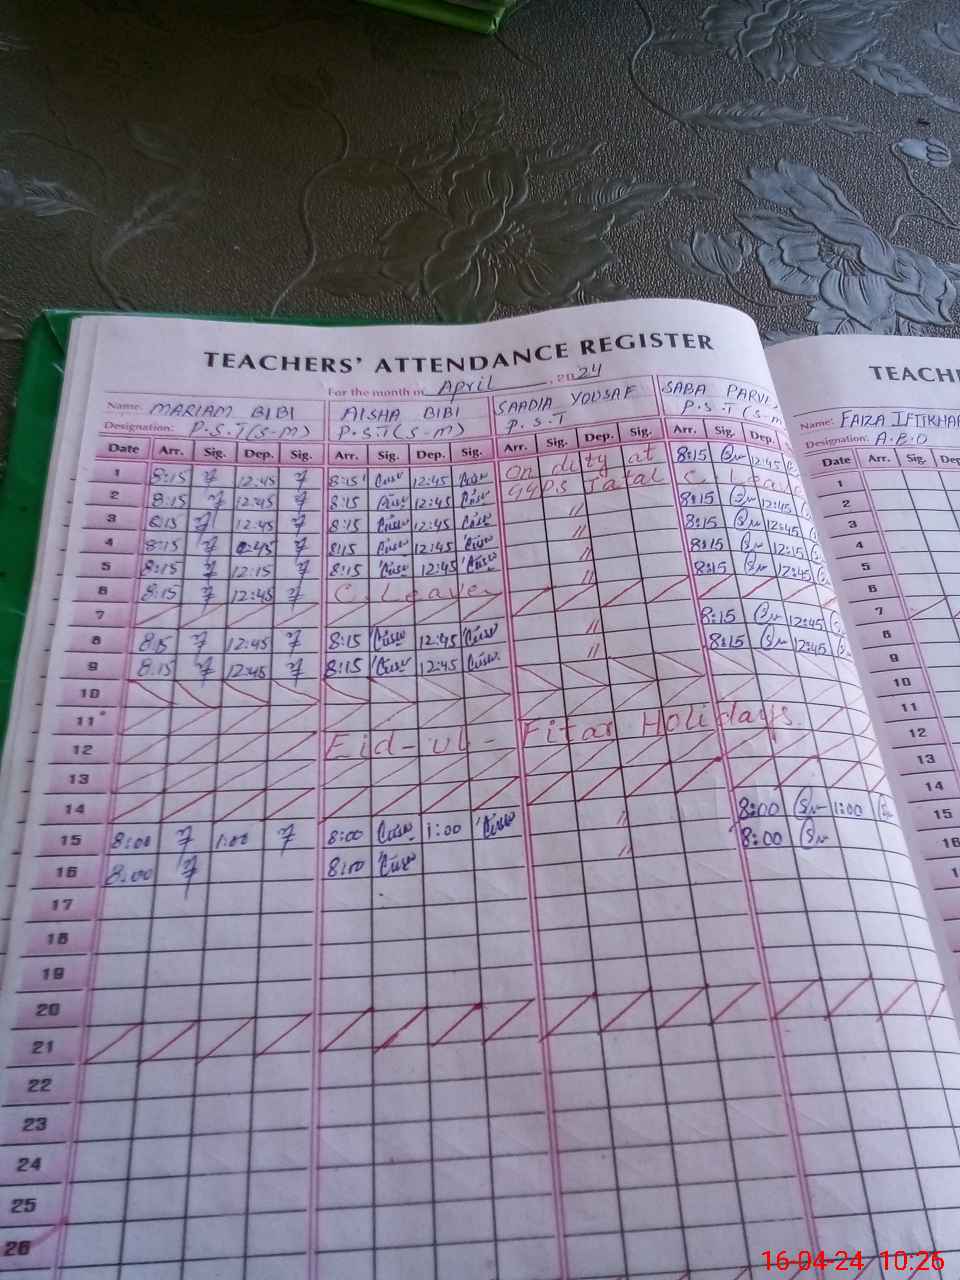 TEACHERS' ATTENDANCE REGISTER
For the month of April, 2024
Name: MARIAM BIBI AISHA BIBI SAADIA YOUSAF SABA PARVI
Designation: P.S.T (S-M) P.S.T (S-M) P.S.T P.S.T (S-M
Date Arr. Sig. Dep. Sig. Arr. Sig. Dep. Sig. Arr. Sig. Dep. Sig. Arr. Sig. Dep.
1 8:15 12:45 8:15 12:45 On duty at 8:15 12:45
2 8:15 12:45 8:15 12:45 GGPS Jatal C. Leave
3 8:15 12:45 8:15 12:45 " 8:15 12:45
4 8:15 12:45 8:15 12:45 " 8:15 12:45
5 8:15 12:15 8:15 12:45 " 8:15 12:15
6 8:15 12:45 C. Leave " 8:15 12:45
7
8 8:15 12:45 8:15 12:45 " 8:15 12:45
9 8:15 12:45 8:15 12:45 " 8:15 12:45
10
11
12 Eid-ul-Fitar Holidays
13
14
15 8:00 1:00 8:00 1:00 " 8:00 1:00
16 8:00 8:00 " 8:00
17
18
19
20
21
22
23
24
25
26
TEACH
Name: FAIZA IFTIKHAR
Designation: A.B.O
Date Arr. Sig. De
1
2
3
4
5
6
7
8
9
10
11
12
13
14
15
16
1
16-04-24 10:26